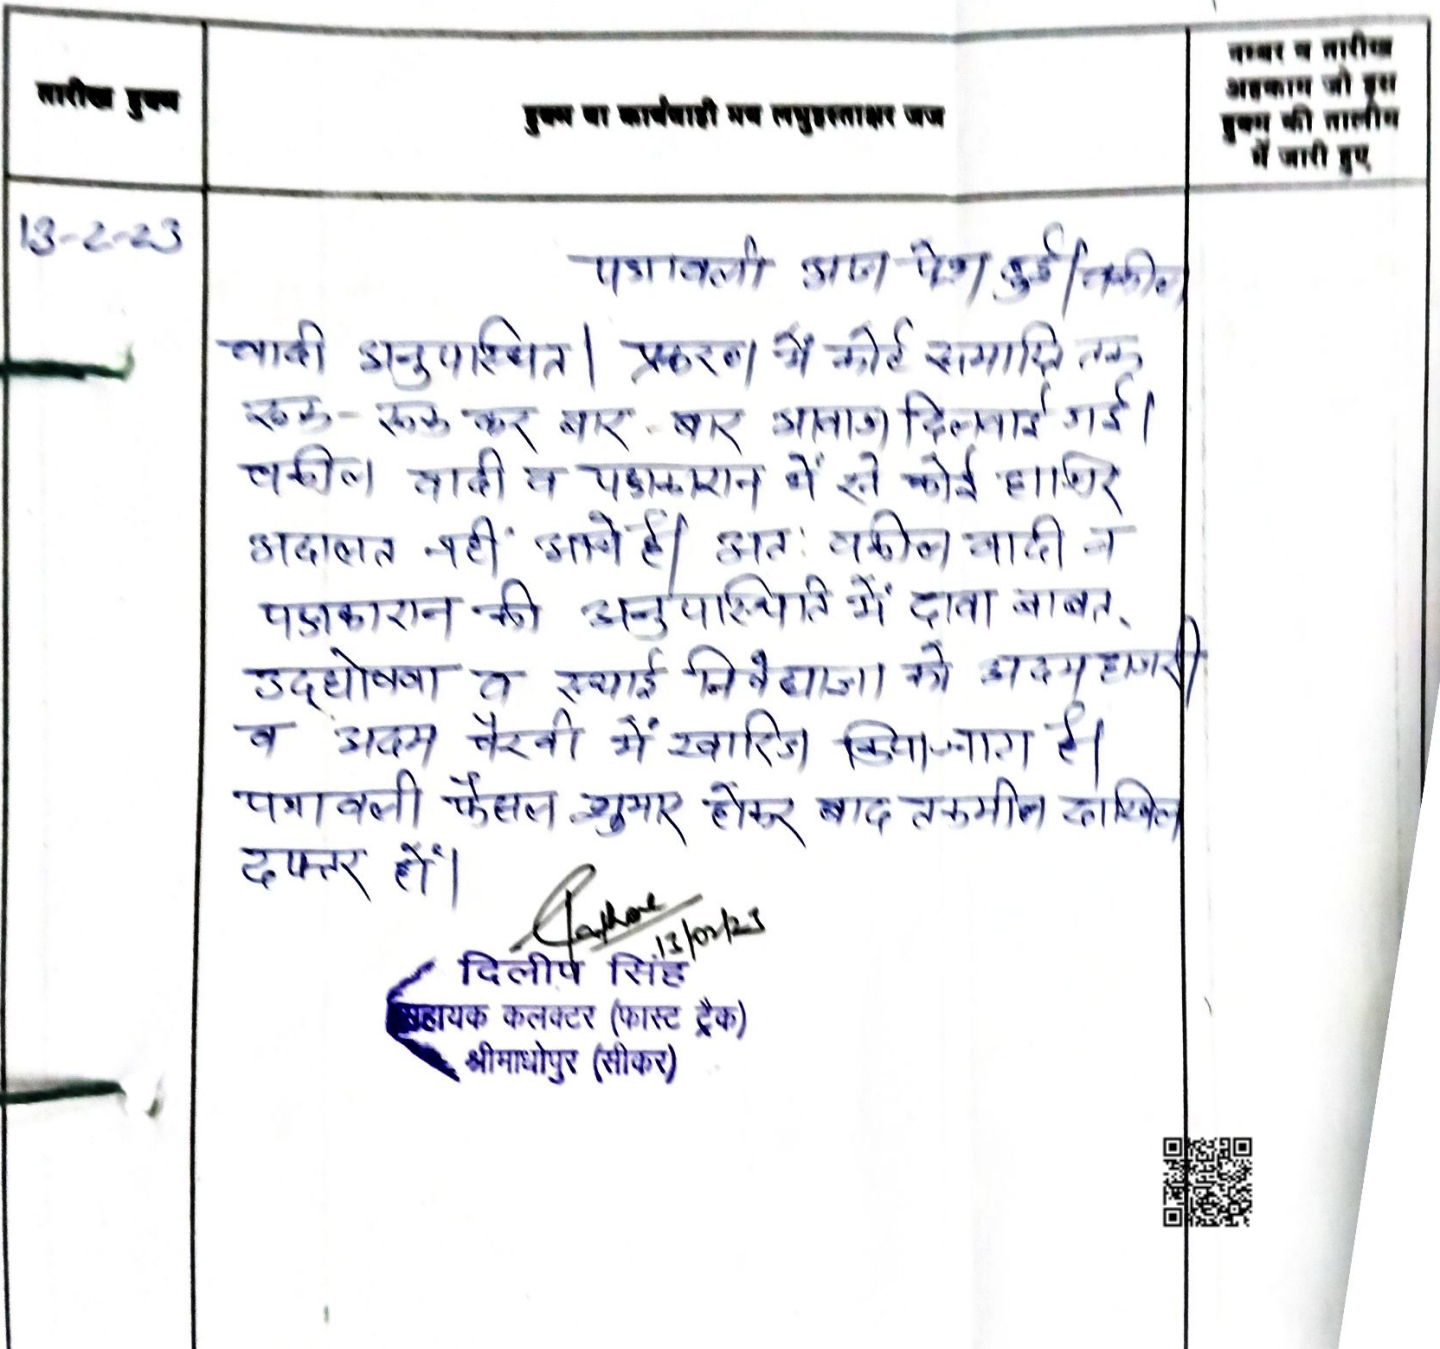 तारीख हुक्म
हुक्म या कार्यवाही मय लघुहस्ताक्षर जज
नम्बर व तारीख
अहकाम जो इस
हुक्म की तालीम
में जारी हुए
13-2-23
पत्रावली आज पेश हुई। वकील
वादी अनुपस्थित। प्रकरण में कोर्ट समाप्ति तक
रूक-रूक कर बार-बार आवाज दिलवाई गई।
वकील वादी व पक्षकारान में से कोई हाजिर
अदालत नहीं आये है। अतः वकील वादी व
पक्षकारान की अनुपस्थिति में दावा बाबत
उद्घोषणा व स्थाई निषेधाज्ञा को अदम हाजरी
व अदम पैरवी में खारिज किया जाता है।
पत्रावली फैसल शुमार होकर बाद तकमील दाखिल
दफ्तर हों।
13/02/23
दिलीप सिंह
सहायक कलक्टर (फास्ट ट्रैक)
श्रीमाधोपुर (सीकर)